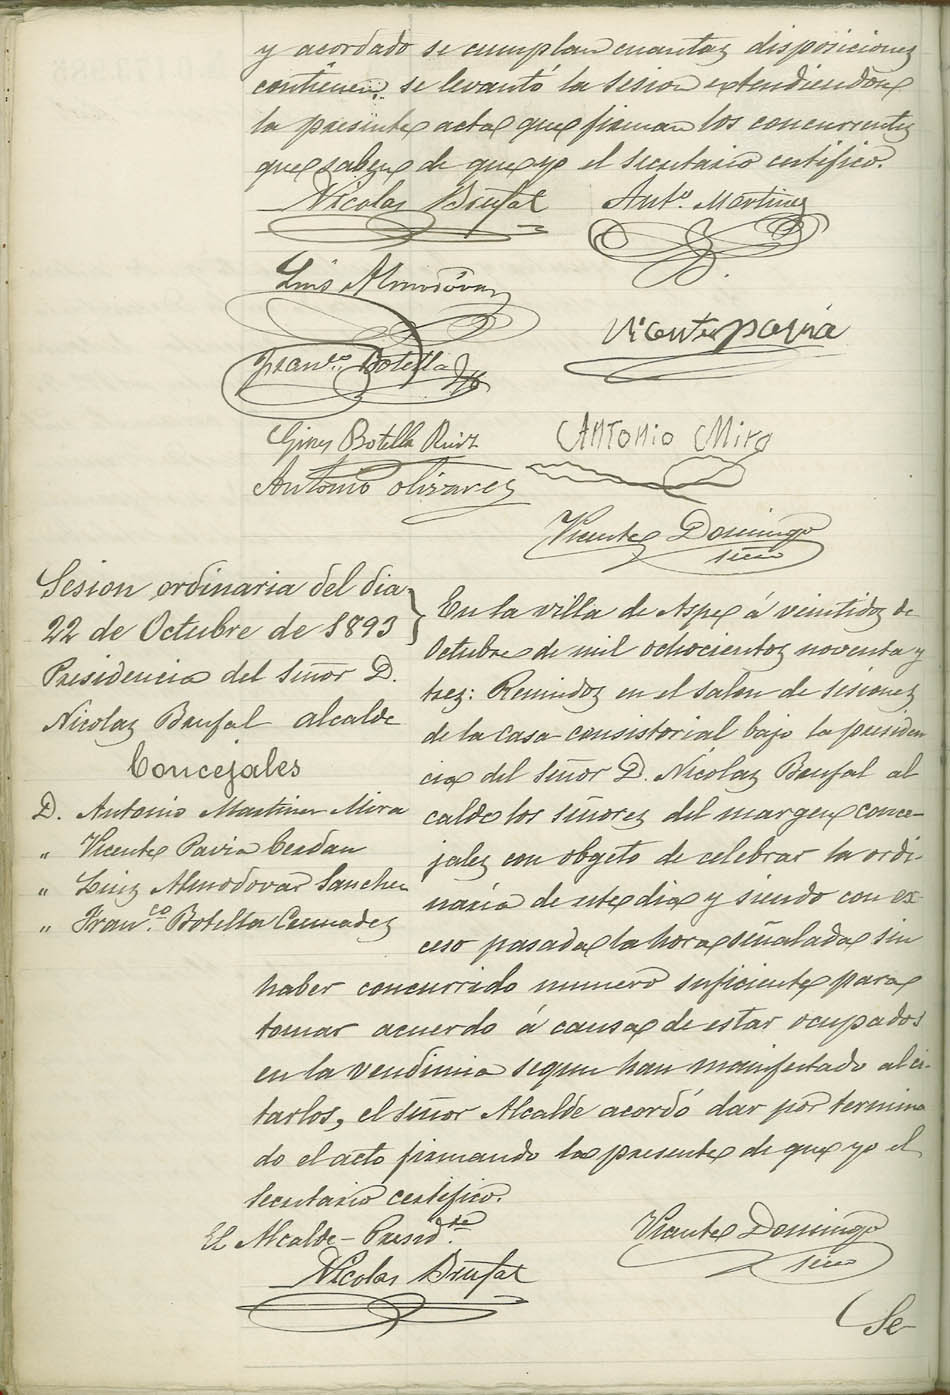 y acordado se cumplan cuantas disposiciones
contienen se levantó la sesion extendiendose
la presente acta que firman los concurrentes
que saben de que yo el secretario certifico.
Nicolas Brufal Antº. Martinez
Luis Almodóvar
Vicente Pavia
Franco. Botella
Gines Botella Ruiz Antonio Mira
Antonio Olivares
Vicente Domingo
srio
Sesion ordinaria del dia
22 de Octubre de 1893
Presidencia del señor D.
Nicolas Brufal alcalde
Concejales
D. Antonio Martinez Mira
" Vicente Pavia Cerdan
" Luis Almodovar Sanchez
" Franco. Botella
En la villa de Aspe á veintidos de
Octubre de mil ochocientos noventa y
tres: Reunidos en el salon de sesiones
de la Casa-consistorial bajo la presiden
cia del señor D. Nicolas Brufal al
calde los señores del margen conce-
jales con obgeto de celebrar la ordi-
naria de este dia y siendo con ex-
ceso pasada la hora señalada sin
haber concurrido numero suficiente para
tomar acuerdo á causa de estar ocupados
en la vendimia segun han manifestado al ci-
tarlos, el señor Alcalde acordó dar por termina
do el acto firmando la presente de que yo el
Secretario certifico.
El Alcalde-Presidte.
Nicolas Brufal
Vicente Domingo
srio
Se-